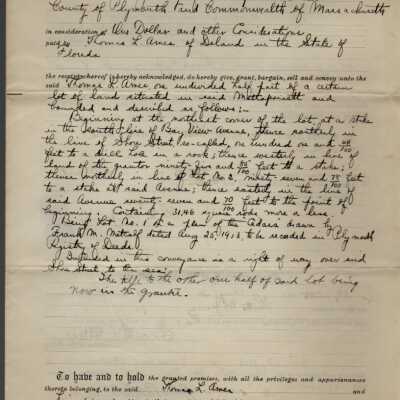 County of Plymouth and Commonwealth of Massachusetts
in consideration of One Dollar and other Considerations
paid by Thomas L. Ames of Deland in the State of
Florida
the receipt whereof is hereby acknowledged, do hereby give, grant, bargain, sell and convey unto the
said Thomas L. Ames one undivided half part of a certain
lot of land situated in said Mattapoisett and
bounded and described as follows:-
Beginning at the northeast corner of the lot, at a stake
in the South line of Bay View Avenue, thence southerly in
the line of Shore Street so-called, one hundred one and 68/100
feet to a drill hole in a rock; thence westerly in line of
land of the grantor ninety and /100 feet to a stake;
thence northerly in line of Lot No. 2, ninety-seven and 75/100 feet
to a stake at said Avenue; thence easterly in the line of
said Avenue seventy-seven and 70/100 feet to the point of
beginning. Containing 31.46 square rods more or less.
Being Lot No. 1 on a plan of the drawn by
Frank M. Metcalf dated Aug 25, 1913, to be recorded in Plymouth
Registry of Deeds.
Included in this conveyance is a right of way over said
Shore Street to the sea.
The title to the other one half of said lot being
now in the grantee.
To have and to hold the granted premises, with all the privileges and appurtenances
thereto belonging, to the said Thomas L. Ames and